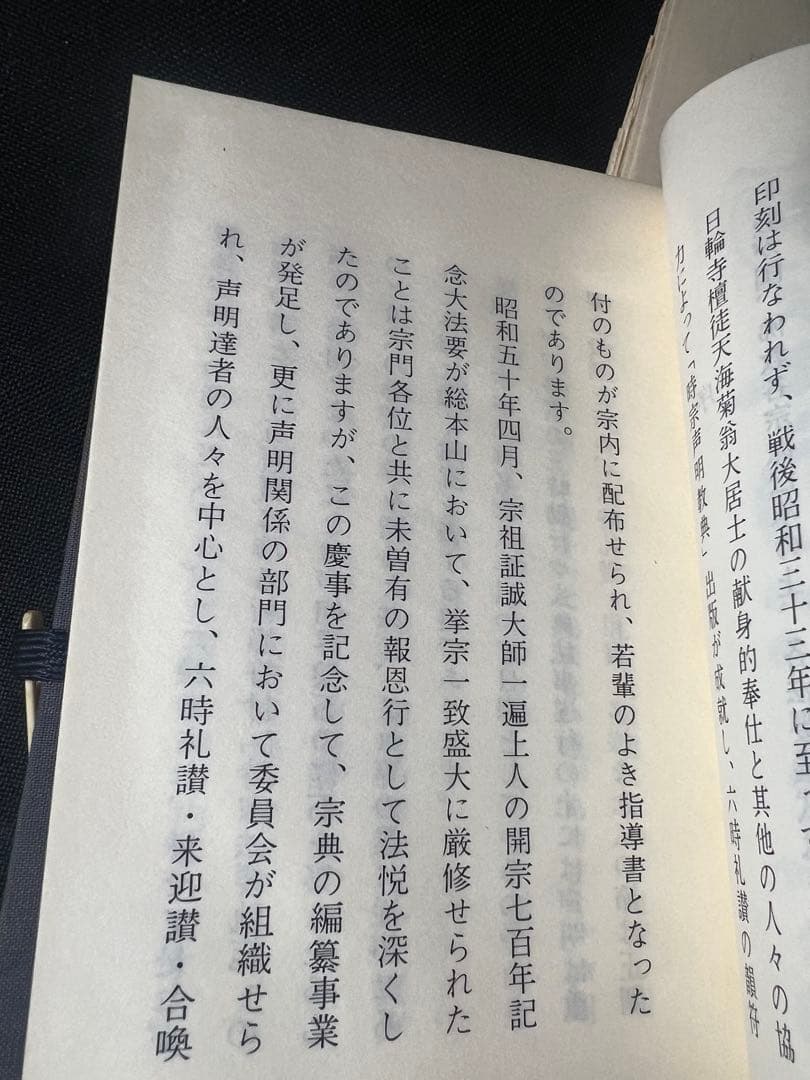 印刻は行なわれず、戦後昭和三十三年に至って
日輪寺檀徒天海菊翁大居士の献身的奉仕と其他の人々の協
力によって「時宗声明教典」出版が成就し、六時礼讃の韻符
付のものが宗内に配布せられ、若輩のよき指導書となった
のであります。
昭和五十年四月、宗祖証誠大師一遍上人の開宗七百年記
念大法要が総本山において、挙宗一致盛大に厳修せられた
ことは宗門各位と共に未曽有の報恩行として法悦を深くし
たのでありますが、この慶事を記念して、宗典の編纂事業
が発足し、更に声明関係の部門において委員会が組織せら
れ、声明達者の人々を中心とし、六時礼讃・来迎讃・合喚